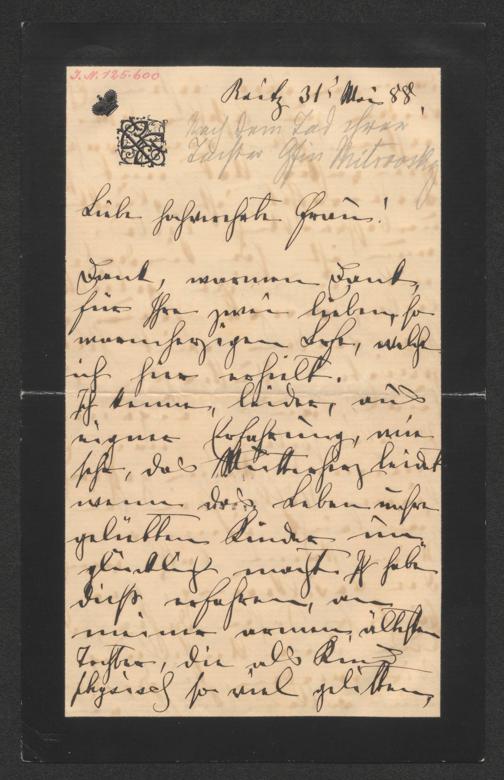 J.N. 125.600
Raitz 31t Mai 88.
Nach dem Tod ihrer
Tochter Gfin Mitrovsky
Liebe hochverehrte Frau!
Dank, warmen Dank,
für Ihre zwei lieben, so
warmherzigen Briefe, welche
ich hier erhielt.
Ich kenne, leider, aus
eigner Erfahrung, wie
sehr, das Mutterherz leidet
wenn das Leben unsre
geliebten Kinder un-
glücklich macht. Ich habe
dieß erfahren, an
meiner armen, ältesten
Tochter, die als Kind
physisch so viel gelitten,